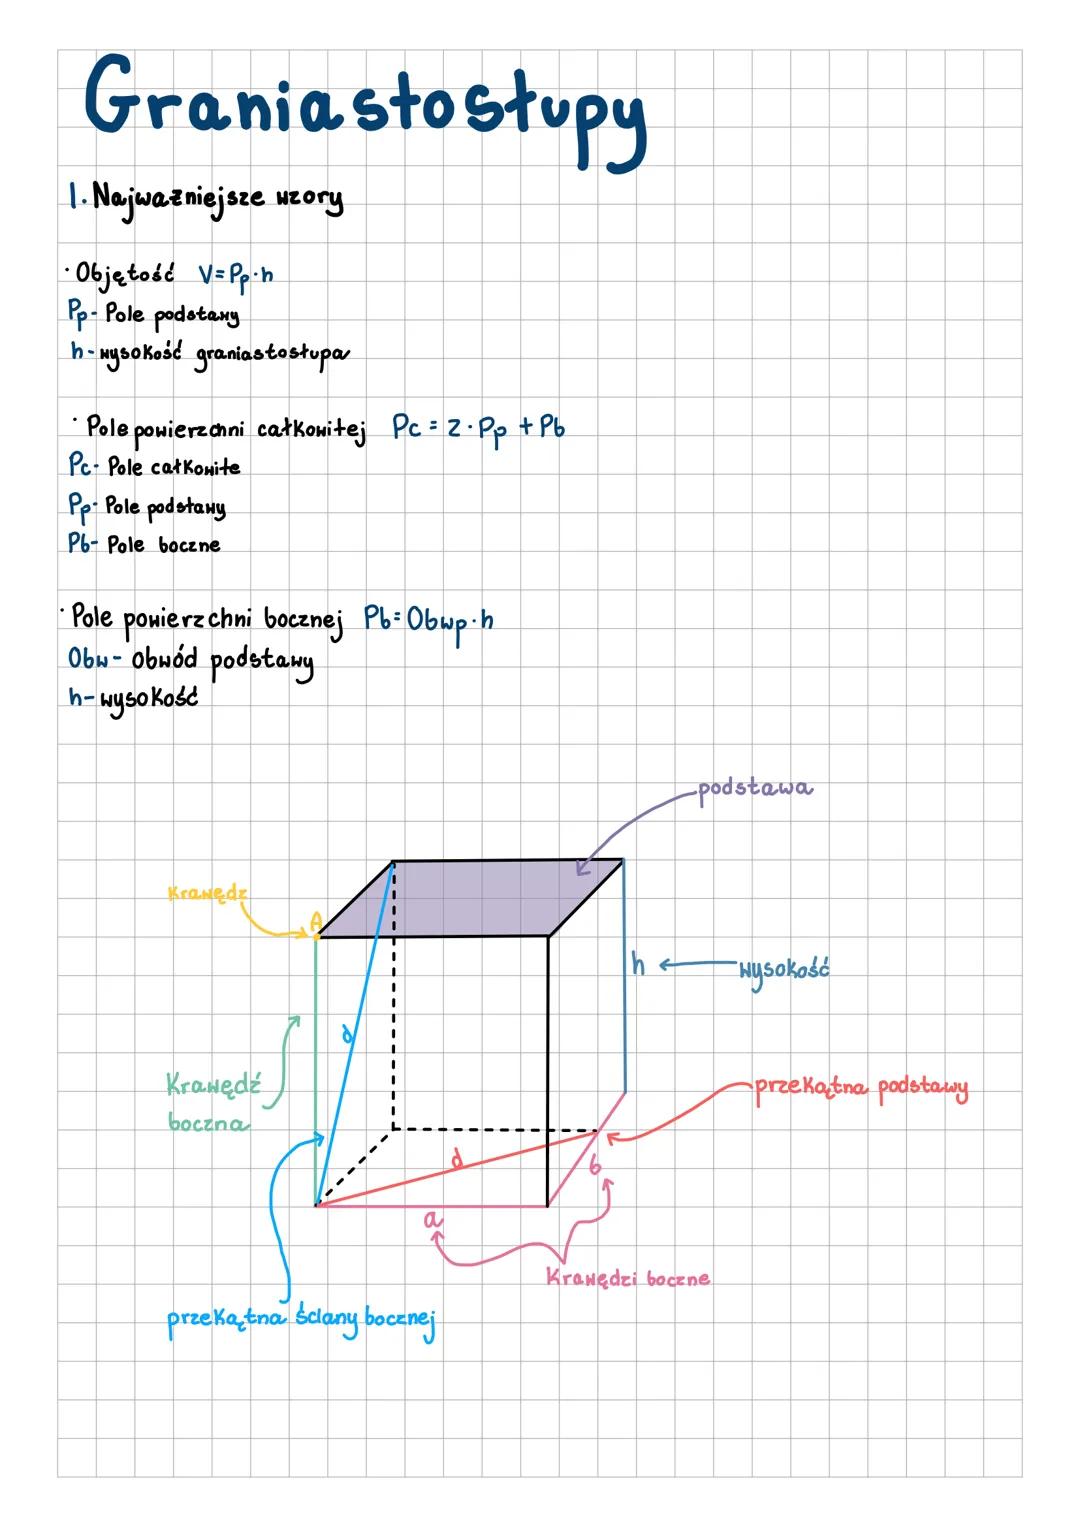 Graniastosłupy
1. Najważniejsze wzory
· Objętość V=Pp·h
Pp- Pole podstawy
h- wysokość graniastosłupa
· Pole powierzchni całkowitej Pc = 2·Pp + Pb
Pc- Pole całkowite
Pp- Pole podstawy
Pb- Pole boczne
· Pole powierzchni bocznej Pb=Obwp·h
Obw- obwód podstawy
h- wysokość
podstawa
Krawędz
A
h
wysokość
d
Krawędź
boczna
przekątna podstawy
d
b
a
Krawędzi boczne
przekątna ściany bocznej